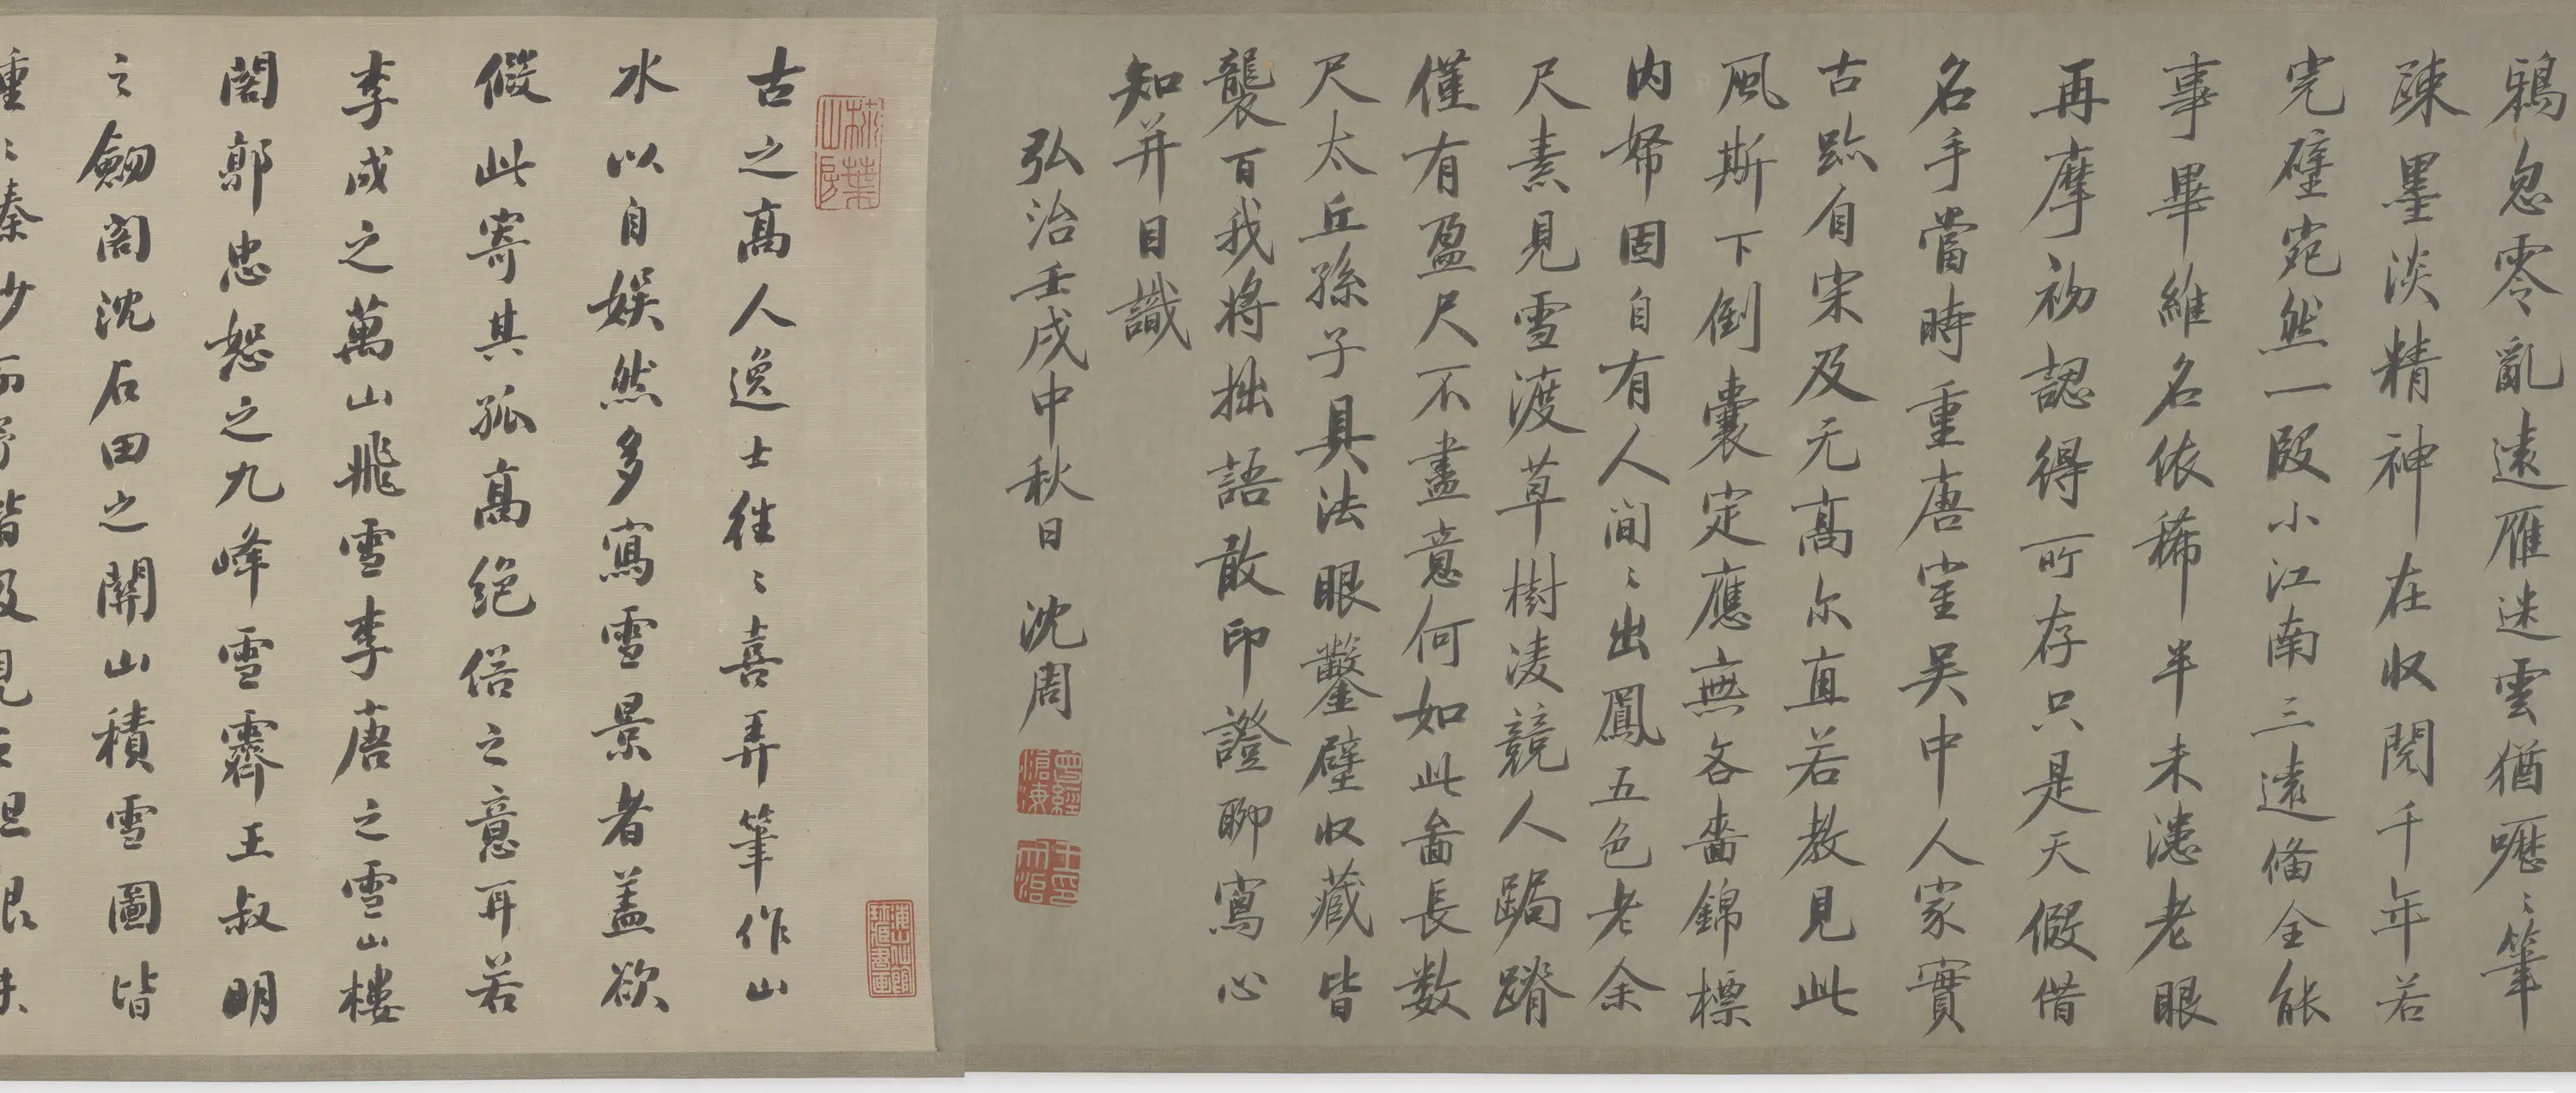 鴉忽零亂遠雁迷雲猶嚦〻筆
踈墨淡精神在収閱千年若
完璧宛然一段小江南三遠備全能
事畢維名依稀半未漶老眼
再摩初認得所存只是天假借
名手當時重唐室吴中人家實
古跡自宋及元高尔直若教見此
風斯下倒囊定應無各嗇錦標
内帑固自有人間〻出鳳五色老余
尺素見雪渡草樹凌競人跼蹐
僅有盈尺不盡意何如此畨長数
尺太丘孫子具法眼鑿壁収藏皆
襲百我將拙語敢印證聊寫心
知并目識
弘治壬戌中秋日 沈周
古之高人逸士往〻喜弄筆作山
水以自娱然多寫雪景者盖欲
假此寄其孤高絶俗之意耳若
李成之萬山飛雪李唐之雪山樓
閣郭忠恕之九峰雪霽王叔明
之劒閣沈石田之關山積雪圖皆